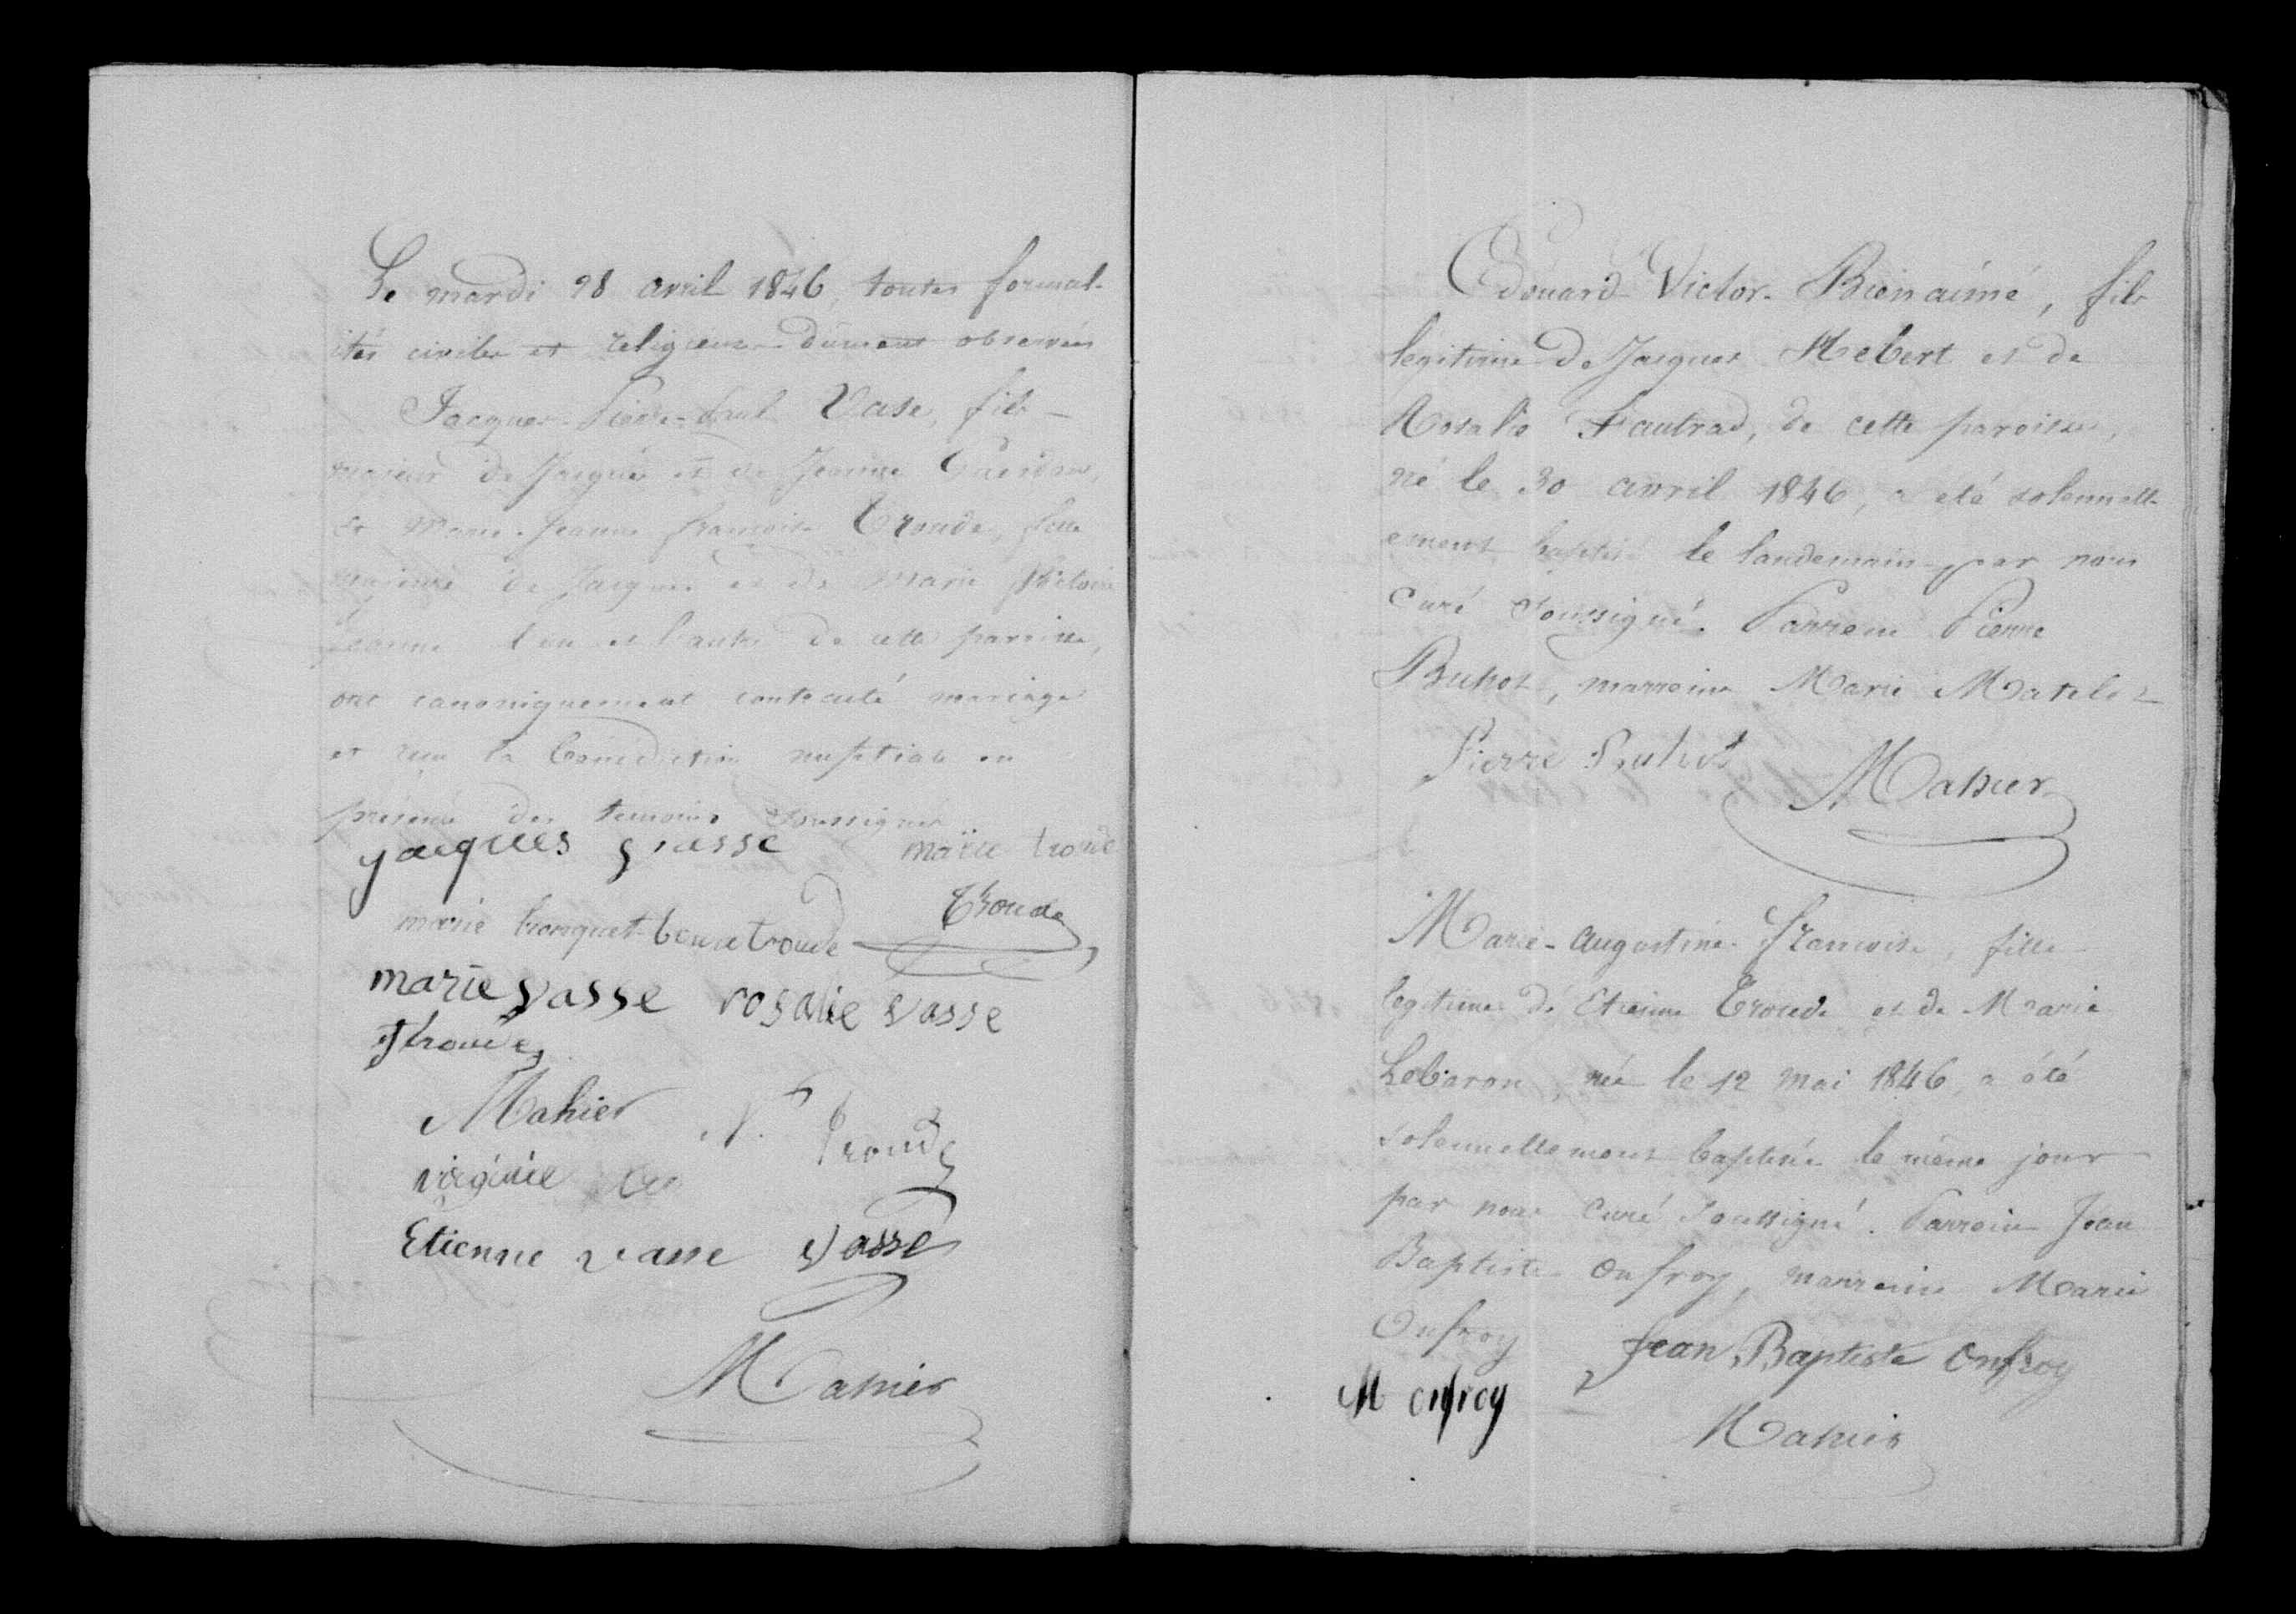 Le mardi 28 avril 1846, toutes formal-
ités civiles et religieuses dûment observées
Jacques-Pierre-Paul Vasse, fils
majeur de Jacques et de Jeanne
et Marie-Jeanne françoise Troude, fille
majeure de Jacques et de Marie
Jeanne l'un et l'autre de cette paroisse,
ont canoniquement contracté mariage
et reçu la bénédiction nuptiale en
présence des temoins soussignés
jacques vasse marie troude
marie troude Troude
marie vasse rosalie vasse
Mahier
virginie Troude
Etienne vasse Vasse
Mahier
Edouard-Victor-Bienaimé, fils
légitime de Jacques Hebert et de
Rosalie Fautrad, de cette paroisse,
né le 30 avril 1846, a été solennell-
ement baptisé le landemain par nous
Curé soussigné. Parrein Pierre
Buhot, marreine Marie Matelot
Pierre Buhot Mahier
Marie-augustine-françoise, fille
légitime de Etienne Troude et de Marie
Lebaron, née le 12 mai 1846, a été
solennellement baptisée le même jour
par nous Curé soussigné. Parrein Jean
Baptiste Onfroy, marreine Marie
Onfroy Jean Baptiste Onfroy
M onfroy
Mahier